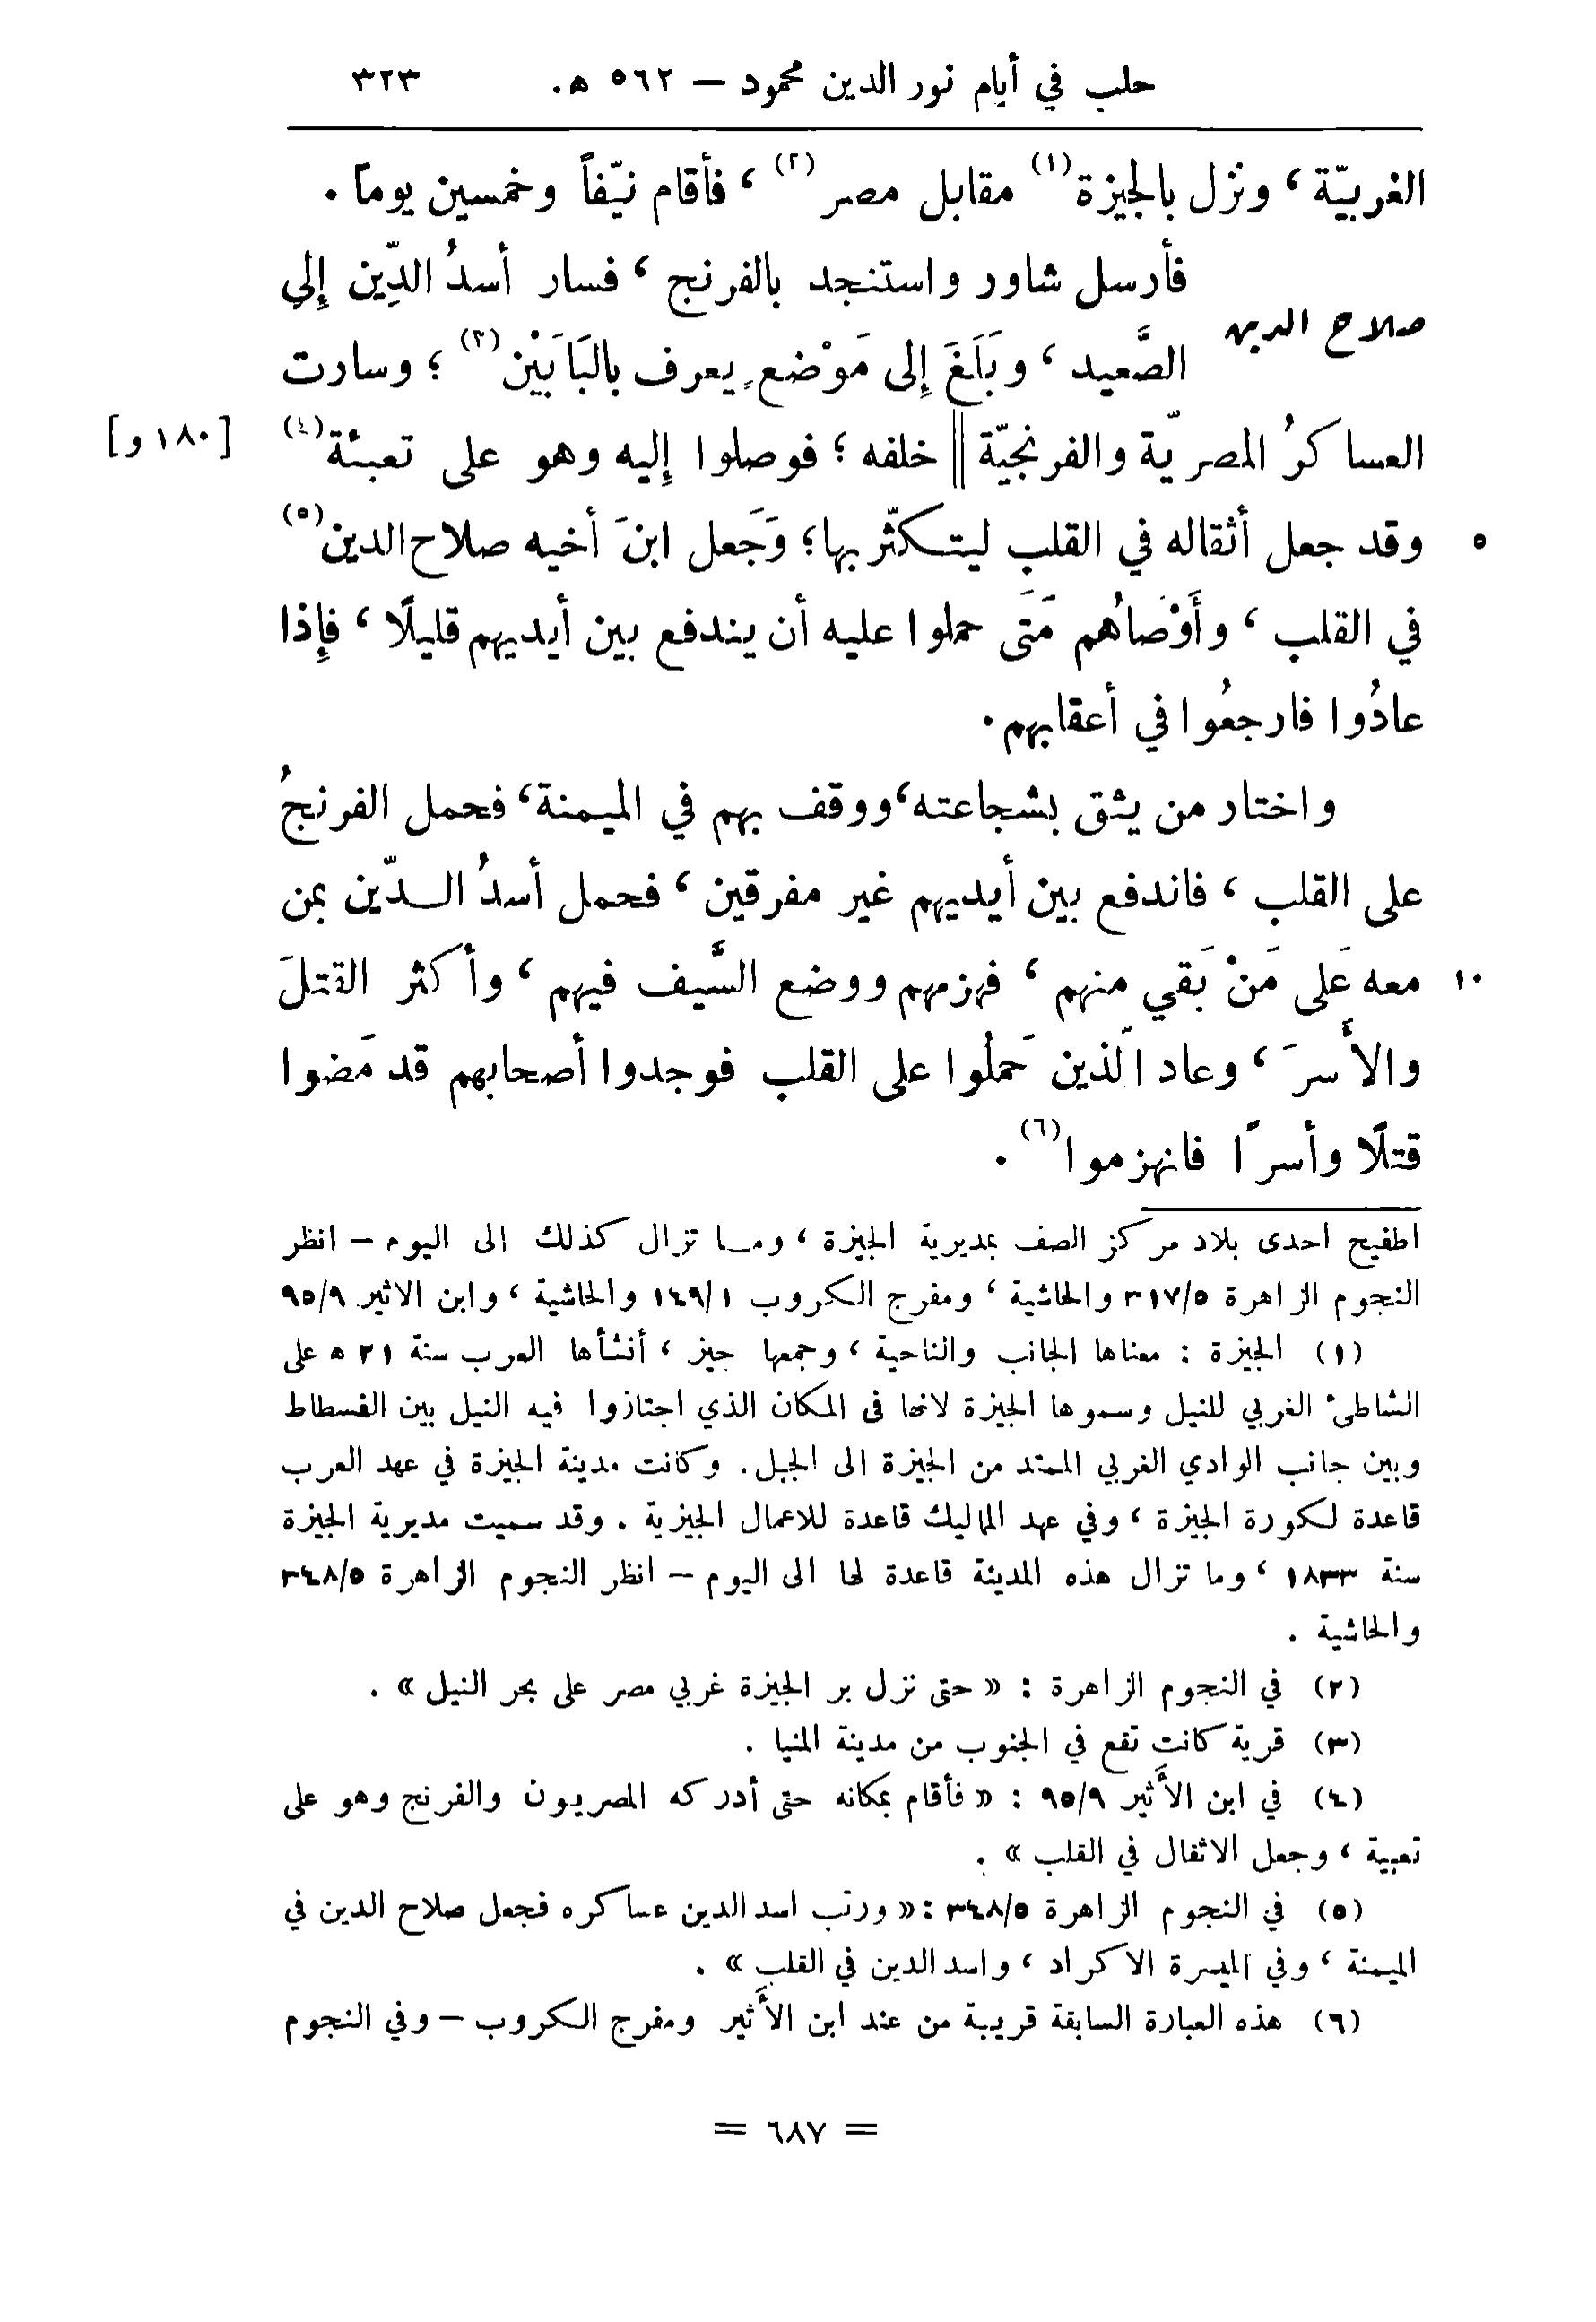 حلب في أيام نور الدين محمود — ٥٦٢ ه. ٣٢٣
الغربيّة ، ونزل بالجيزة (١) مقابل مصر (٢) ، فأقام نيّفاً وخمسين يوماً .
فأرسل شاور واستنجد بالفرنج ، فسار أسدُ الدِّين إِلى
صلاح الدين
الصَّعيد ، وبَلَغَ إِلى مَوْضعٍ يعرف بالبَابَيْن (٣) ؛ وسارت
العساكرُ المصريّة والفرنجيّة || خلفه ؛ فوصلوا إِليه وهو على تعبئة (٤) [١٨٠ و]
٥ وقد جعل أثقاله في القلب ليتكثّر بها ؛ وَجَعل ابنَ أخيه صلاح الدين (٥)
في القلب ، وأَوْصَاهُم مَتَى حملوا عليه أن يندفع بين أيديهم قليلًا ، فإِذا
عادُوا فارجعُوا في أعقابهم .
واختار من يثق بشجاعته ، ووقف بهم في الميمنة ، فحمل الفرنجُ
على القلب ، فاندفع بين أيديهم غير مفرقين ، فحمل أسدُ الـدّين بمن
١٠ معه عَلى مَنْ بَقي منهم ، فهزمهم ووضع السَّيف فيهم ، وأكثر القتلَ
والأَسرَ ، وعاد الّذين حَملُوا على القلب فوجدوا أصحابهم قد مَضوا
قتلًا وأسرًا فانهزموا (٦) .
اطفيح احدى بلاد مركز الصف بمديرية الجيزة ، ومـا تزال كذلك الى اليوم — انظر
النجوم الزاهرة ٣١٧/٥ والحاشية ، ومفرج الكروب ١٤٩/١ والحاشية ، وابن الاثير ٩٥/٩
(١) الجيزة : معناها الجانب والناحية ، وجمعها جيز ، أنشأها العرب سنة ٢١ ه على
الشاطىء الغربي للنيل وسموها الجيزة لانها في المكان الذي اجتازوا فيه النيل بين الفسطاط
وبين جانب الوادي الغربي الممتد من الجيزة الى الجبل . وكانت مدينة الجيزة في عهد العرب
قاعدة لكورة الجيزة ، وفي عهد المماليك قاعدة للاعمال الجيزية . وقد سميت مديرية الجيزة
سنة ١٨٣٣ ، وما تزال هذه المدينة قاعدة لها الى اليوم — انظر النجوم الزاهرة ٣٤٨/٥
والحاشية .
(٢) في النجوم الزاهرة : « حتى نزل بر الجيزة غربي مصر على بحر النيل » .
(٣) قرية كانت تقع في الجنوب من مدينة المنيا .
(٤) في ابن الأثير ٩٥/٩ : « فأقام بمكانه حتى أدركه المصريون والفرنج وهو على
تعبية ، وجعل الاثقال في القلب » .
(٥) في النجوم الزاهرة ٣٤٨/٥ : « ورتب اسد الدين عساكره فجعل صلاح الدين في
الميمنة ، وفي الميسرة الاكراد ، واسد الدين في القلب » .
(٦) هذه العبارة السابقة قريبة من عند ابن الأثير ومفرج الكروب — وفي النجوم
= ٦٨٧ =